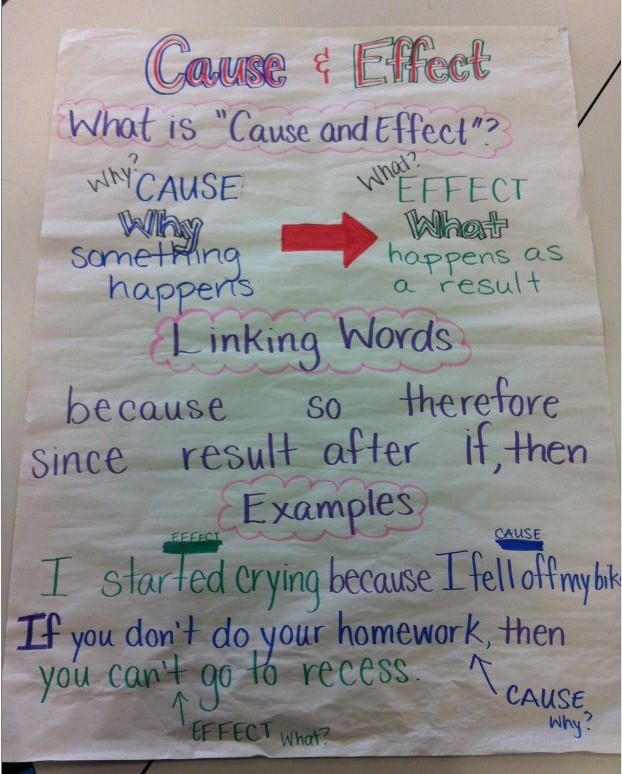 Cause & Effect
What is "Cause and Effect"?
Why? CAUSE
Why
something
happens
What? EFFECT
What
happens as
a result
Linking Words
because so therefore
since result after if, then
Examples
EFFECT CAUSE
I started crying because I fell off my bik
If you don't do your homework, then
you can't go to recess.
CAUSE
Why?
EFFECT What?